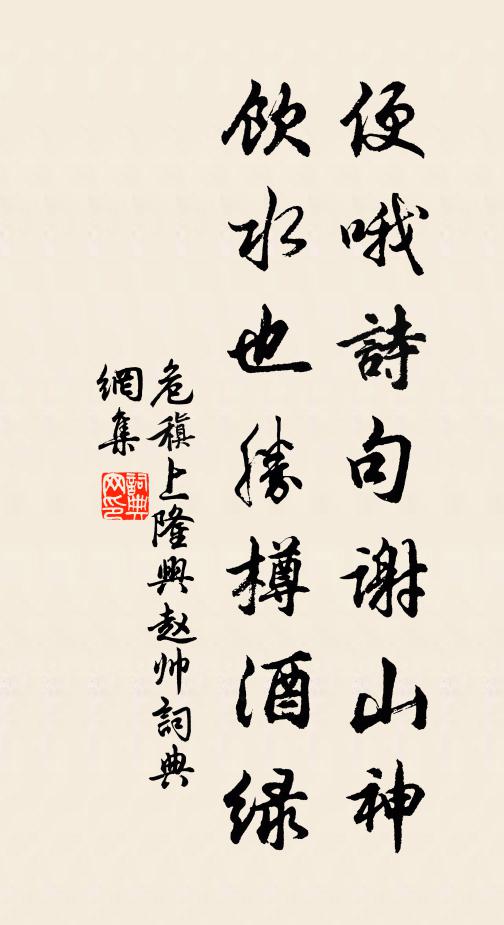 便哦詩句谢山神
飲水也勝樽酒緑
危稹上隆興赵帅詞典
網集
詞典
网印